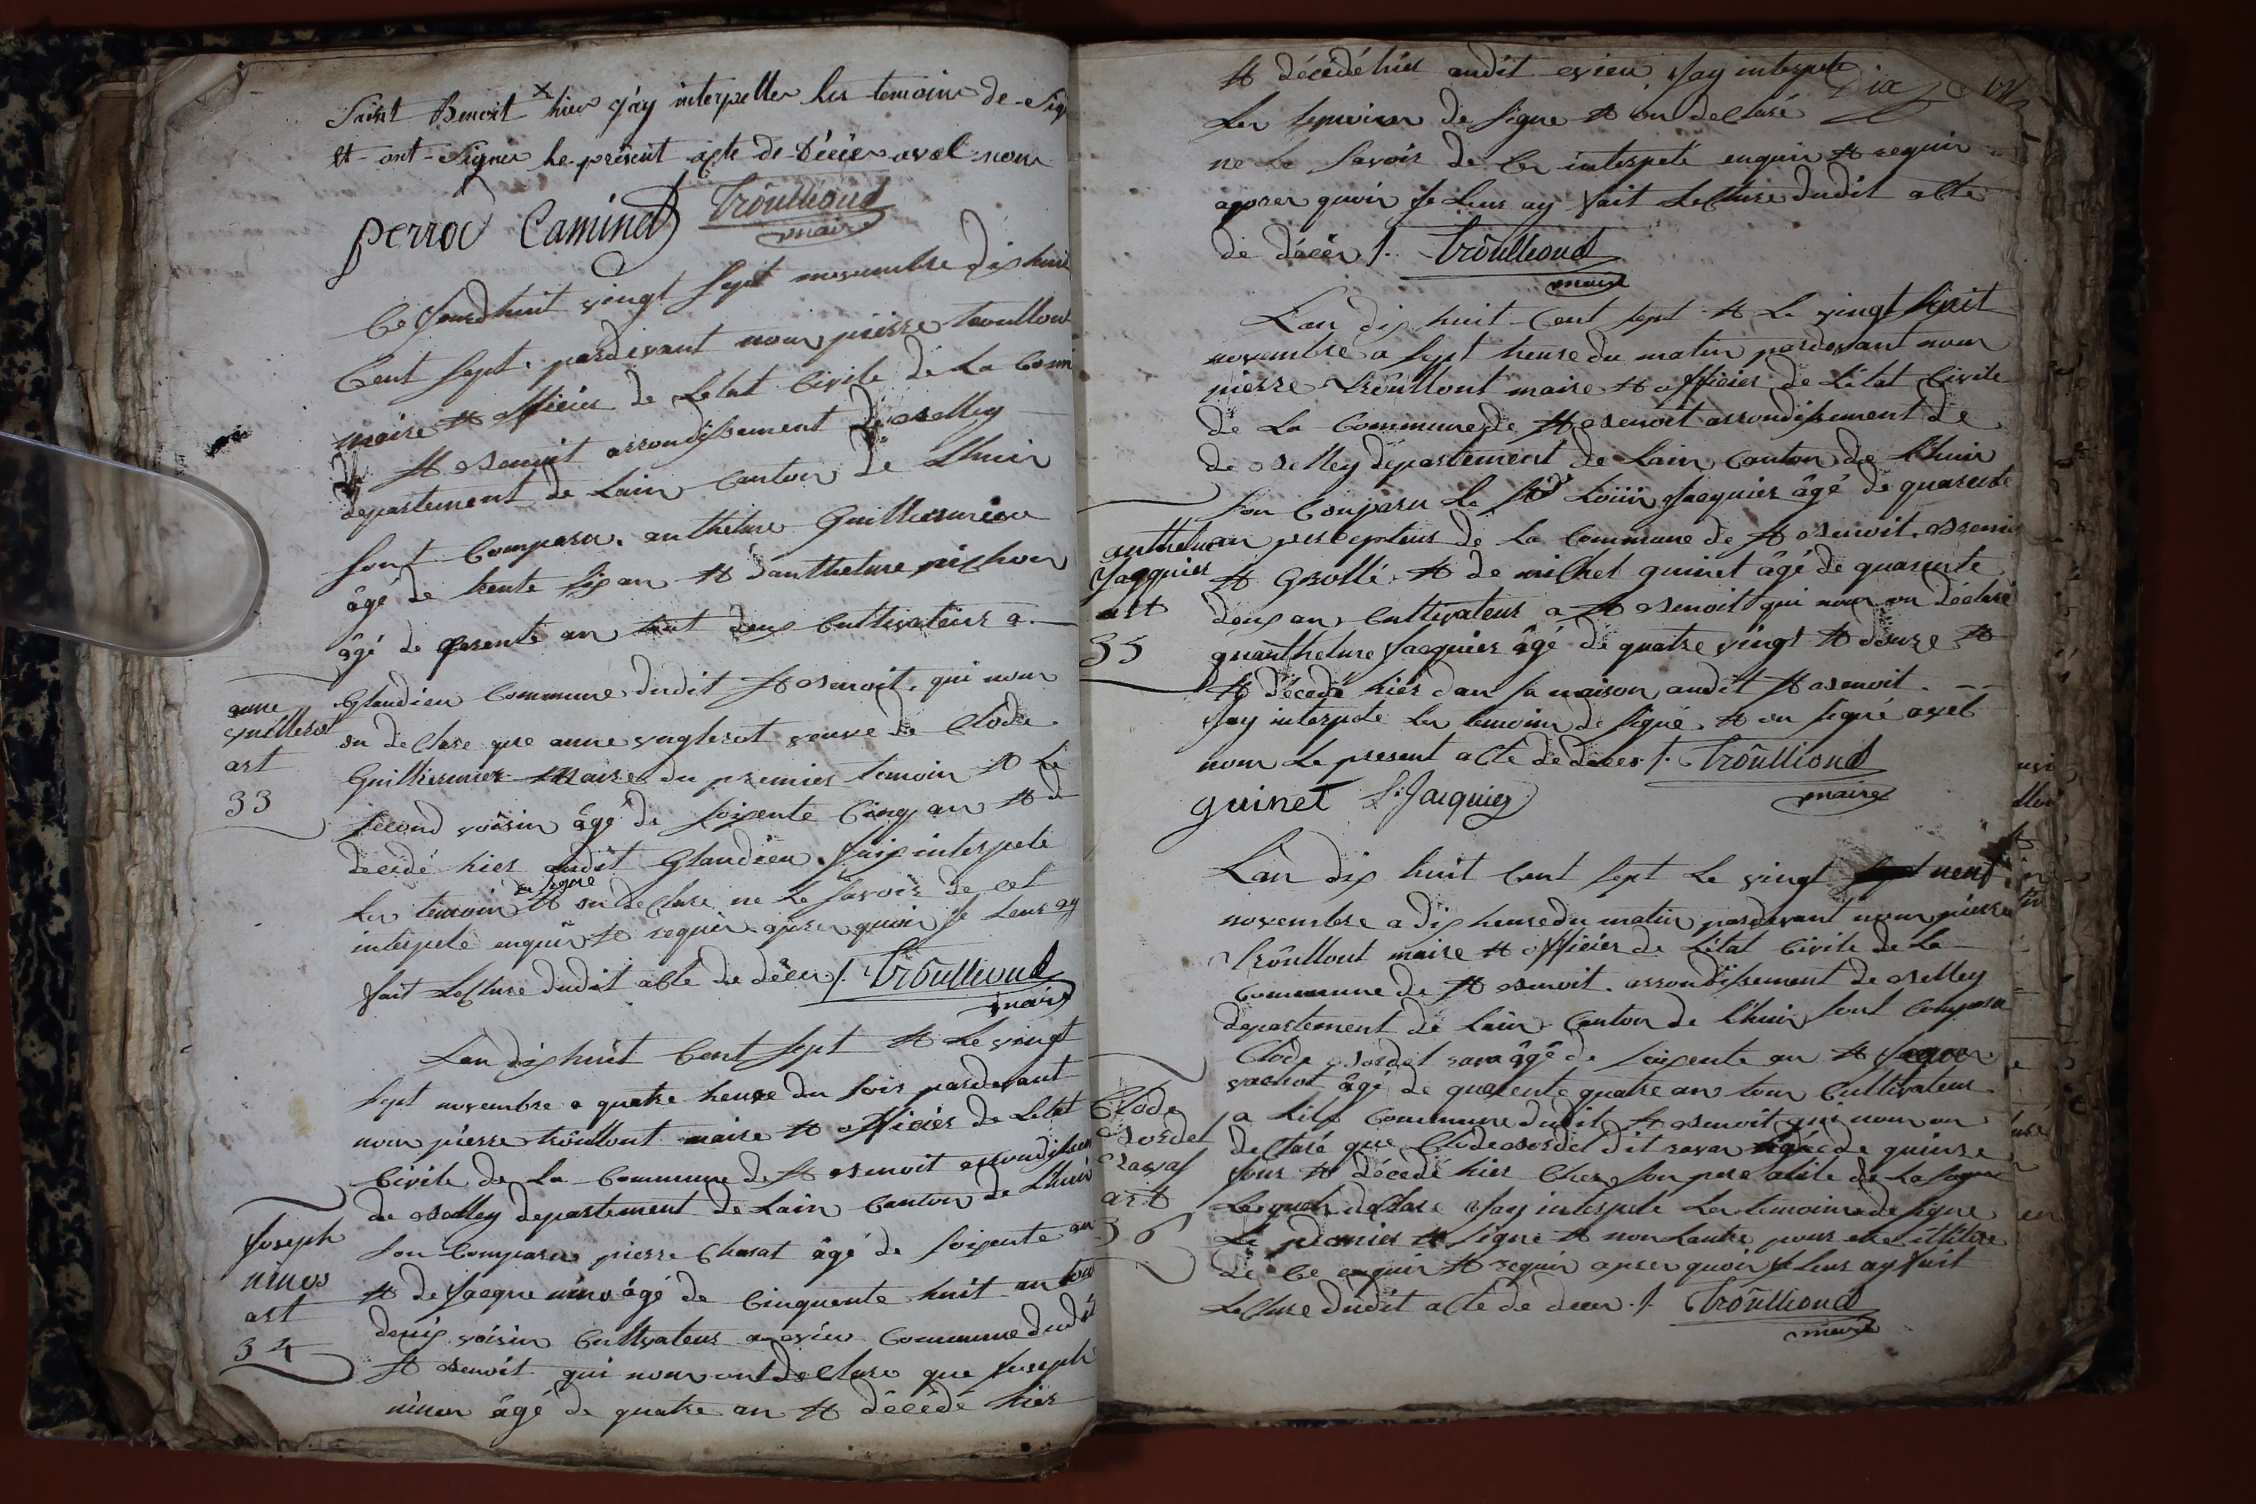 Saint Benoit hier j'ay interpeller les temoins de sig
et ont signer le présent acte de Décés avec nous
perrod Caminet Trôullioud
maire
Ce jourdhuit vingt sept novembre dix huit
Cent sept. pardevant nous pierre trouillout
maire et officier de Letat Civile de La Com
de St Benoit arrondissement de Belley
departement de Lain Canton de Lhuis
sont Comparu. anthelme Guilliermier
âgé de trente six an et danthelme pichon
âgé de an tout deux Cultivateurs a
Glandieu Commune dudit St Benoit. qui nous
on declare que anne veuve de Clode
Guilliermier du premier temoin et le
second voisin âgé de soixente Cinq an et
decedé hier audit Glandieu. jaij interpele
Les temoin de signe et on declare ne le savoir de cet
interpele enquir et requir. apres quoir je Leur ay
fait Lecture dudit acte de décer /. Trôullioud
maire
Lan dix huit Cent sept et le vingt
sept novembre a quatre heure du soir pardevant
nous pierre trôullout maire et officier de Letat
Civile de La Commune de St Benoit arrondissem
de Belley departement de Lain Canton de Lhuis
son Comparu pierre Charat âgé de soixente an
et de Jacque ninos âgé de Cinquente huit an tou
deuix voisin Cultivateur a evieu Commune dudit
St Benoit qui nous ont declare que Joseph
ninos âgé de quatre an et décédé hier
anne
art
33
Joseph
ninos
art
34
et décédé hier audit evieu Jay interpele
Les temoins de signe et on declaré
ne le savoir de ce interpelé enquir et requir
apres quoir je Leur ay fait Lecture dudit acte
de décer /. Trôullioud
maire
Lan dix huit Cent sept et Le vingt huit
novembre a sept heure du matin pardevant nous
pierre Trôullout maire et officier de Létat Civile
de La Commune de St Benoit arrondissement de
de Belley département de Lain Canton de Lhuis
son Comparu le Sr Loüis Jacquier âgé de quarente
an percepteur de La Commune de St Benoit.
et Groslé. et de michel guinet âgé de quarente
deux an Cultivateur a St Benoit qui nous on déclaré
quanthelme Jacquier âgé de quatre vingt et douze
et décedé hier dan sa maison audit St Benoit.
Jay interpele Les temoin de signé. et on signé avec
nous Le present acte de décer /. Trôullioud
maire
guinet L. Jacquier
Lan dix huit Cent sept Le vingt neuf
novembre a dix heure du matin pardevant nous pierre
Trôullout maire et officier de Létat Civile de La
Commune de St Benoit. arrondissement de Belley
departement de Lain Canton de Lhuis sont Comparu
Clode Bordel âgé de soixente an et
vachot âgé de quarente quatre an tous Cultivateur
a Commune dudit St Benoit qui nous on
declaré que Clode Bordel dit ravas âgé de quinze
jour et décedé hier Cher son pere
Jay interpele Les temoin de signe
Le premier a signe et non Lautre pour etre illitere
de ce enquir et requir apres quoir je Leur ay fait
Lecture dudit acte de decer ./. Trôullioud
maire
anthelme
Jacquier
art
35
Clode
Bordel
art
36